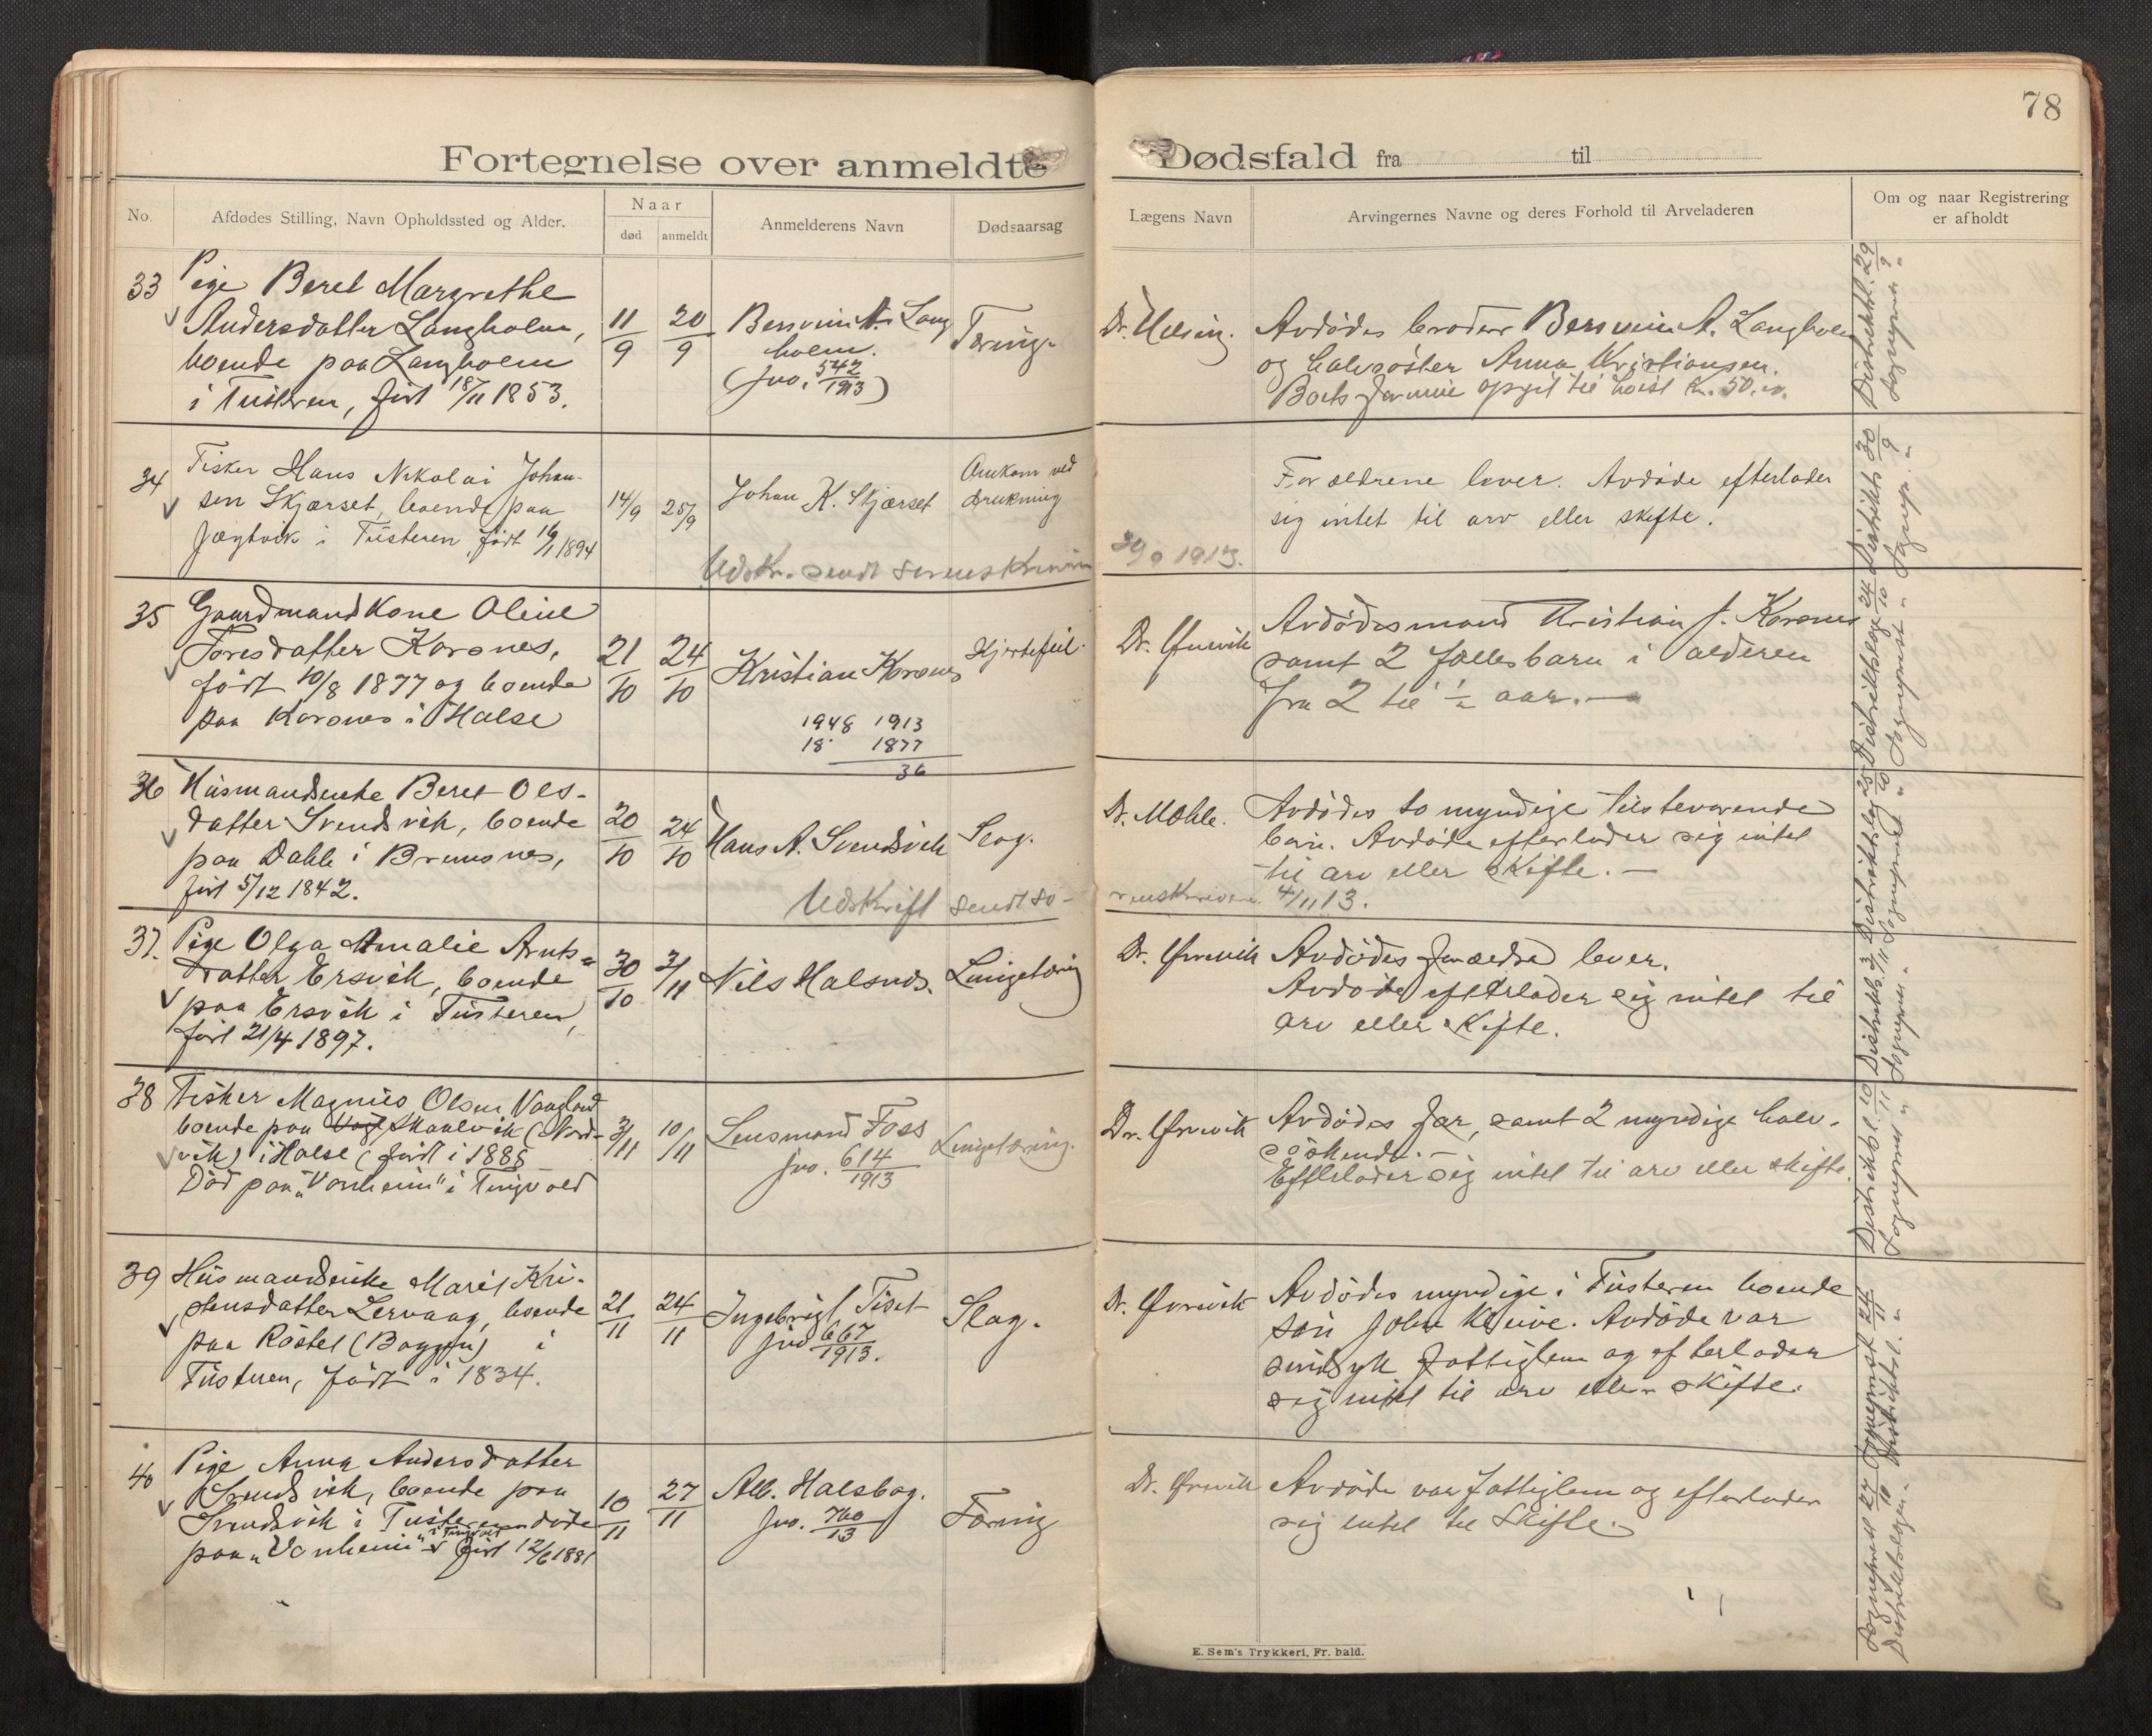 78
Fortegnelse over anmeldte Dødsfald fra til
No.
Afdødes Stilling, Navn Opholdssted og Alder.
Naar
død
anmeldt
Anmelderens Navn
Dødsaarsag
Lægens Navn
Arvingernes Navne og deres Forhold til Arveladeren
Om og naar Registrering
er afholdt
33
Pige Beret Margrethe
Andersdatter Langholm,
boende paa Langholm
i Tusteren, født 18/11 1853.
11/9
20/9
A. Lang
holm.
(Jno. 542/1913)
Tæring.
Dr.
Avdødes broder A. Langholm
og halvsøster Anna Kristiansen.
Boets formue opgit til høist Kr. 50.00.
Distriktsl. 29/9
Sogneprs "
34
Fisker Hans Nikolai Johan-
sen Skjærset, boende paa
Jægtvik i Tusteren, født 1894
14/9
25/9
Johan K. Skjærset
Omkom ved
drukning
Udskr. sendt sorenskriveren
30/9 1913.
Forældrene lever. Avdøde efterlader
sig intet til arv eller skifte.
Distrikts 30/9
Sognep. "
35
Gaardmandkone Oline
Toresdatter Korsnes,
født 10/8 1877 og boende
paa Korsnes i Halse
21/10
24/10
Kristian Korsnes
1948 1913
18 1877
36
Hjertefeil.
Dr. Ørnvik
Avdødes mand Kristian J. Korsnes
samt 2 fællesbarn i alderen
fra 2 til ½ aar. —
Distriktslæge 24/10
Sogneprest "
36
Husmandsenke Beret Ols-
datter Svendsvik, boende
paa Dahle i Bremsnes,
født 5/12 1842.
20/10
24/10
Hans A. Svendsvik
Slag.
Udskrift sendt so-
renskriveren 4/11 13.
Dr. Mæhle.
Avdødes to myndige tilsteværende
barn. Avdøde efterlader sig intet
til arv eller skifte. —
Distriktslæg 25/10
Sogneprest "
37.
Pige Olga Amalie Arnts=
datter Ersvik, boende
paa Ersvik i Tusteren,
født 21/4 1897.
30/10
3/11
Nils Halsnes.
Lungetæring
Dr. Ørnvik
Avdødes forældre lever.
Avdøde efterlader sig intet til
arv eller skifte.
Distriktsl. 3/11
Sognepres "
38
Fisker Magnus Olsen Vaagland
boende paa Skaalvik (Nord-
vik) i Halse (født i 1885
Død paa "Vonheim" i Tingvold
3/11
10/11
Lensmand Foss
jno. 614/1913
Lungetæring.
Dr. Ørnvik
Avdødes far, samt 2 myndige halv-
søskende. —
Efterlader sig intet til arv eller skifte.
Distriktsl. 10/11
Sogneprest "
39
Husmandsenke Marit Kri-
stensdatter Lervaag, boende
paa Røstel (Boggen) i
Tusteren, født i 1834.
21/11
24/11
Ingebrigt Tiset
jno 667/1913.
Slag.
Dr. Ørnvik
Avdødes myndige i Tusteren boende
søn John. Avdøde var
sindsyk fattiglem og efterlader
sig intet til arv eller skifte.
Sogneprest 24/11
Distriktsl. "
40
Pige Anna Andersdatter
Svendsvik, boende paa
Svendsvik i Tusteren døde
paa "Vonheim" i Tingvold født 12/6 1881
10/11
27/11
Alb. Halsbog.
Jno. 760/13
Tæring
Dr. Ørnvik
Avdøde var fattiglem og efterlader
sig intet til skifte.
Sogneprest 27/10
Distriktslægen "
E. Sem's Trykkeri, Fr. hald.